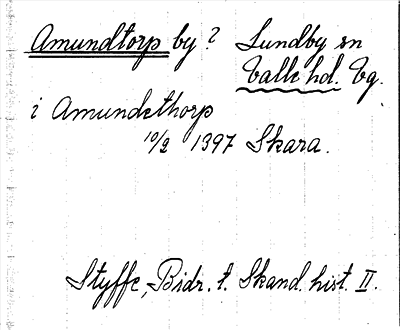 Amundtorp by? Lundby sn
Valle hd. Vg.
i Amundethorp
10/2 1397 Skara.
Styffe, Bidr. t. Skand. hist. II.